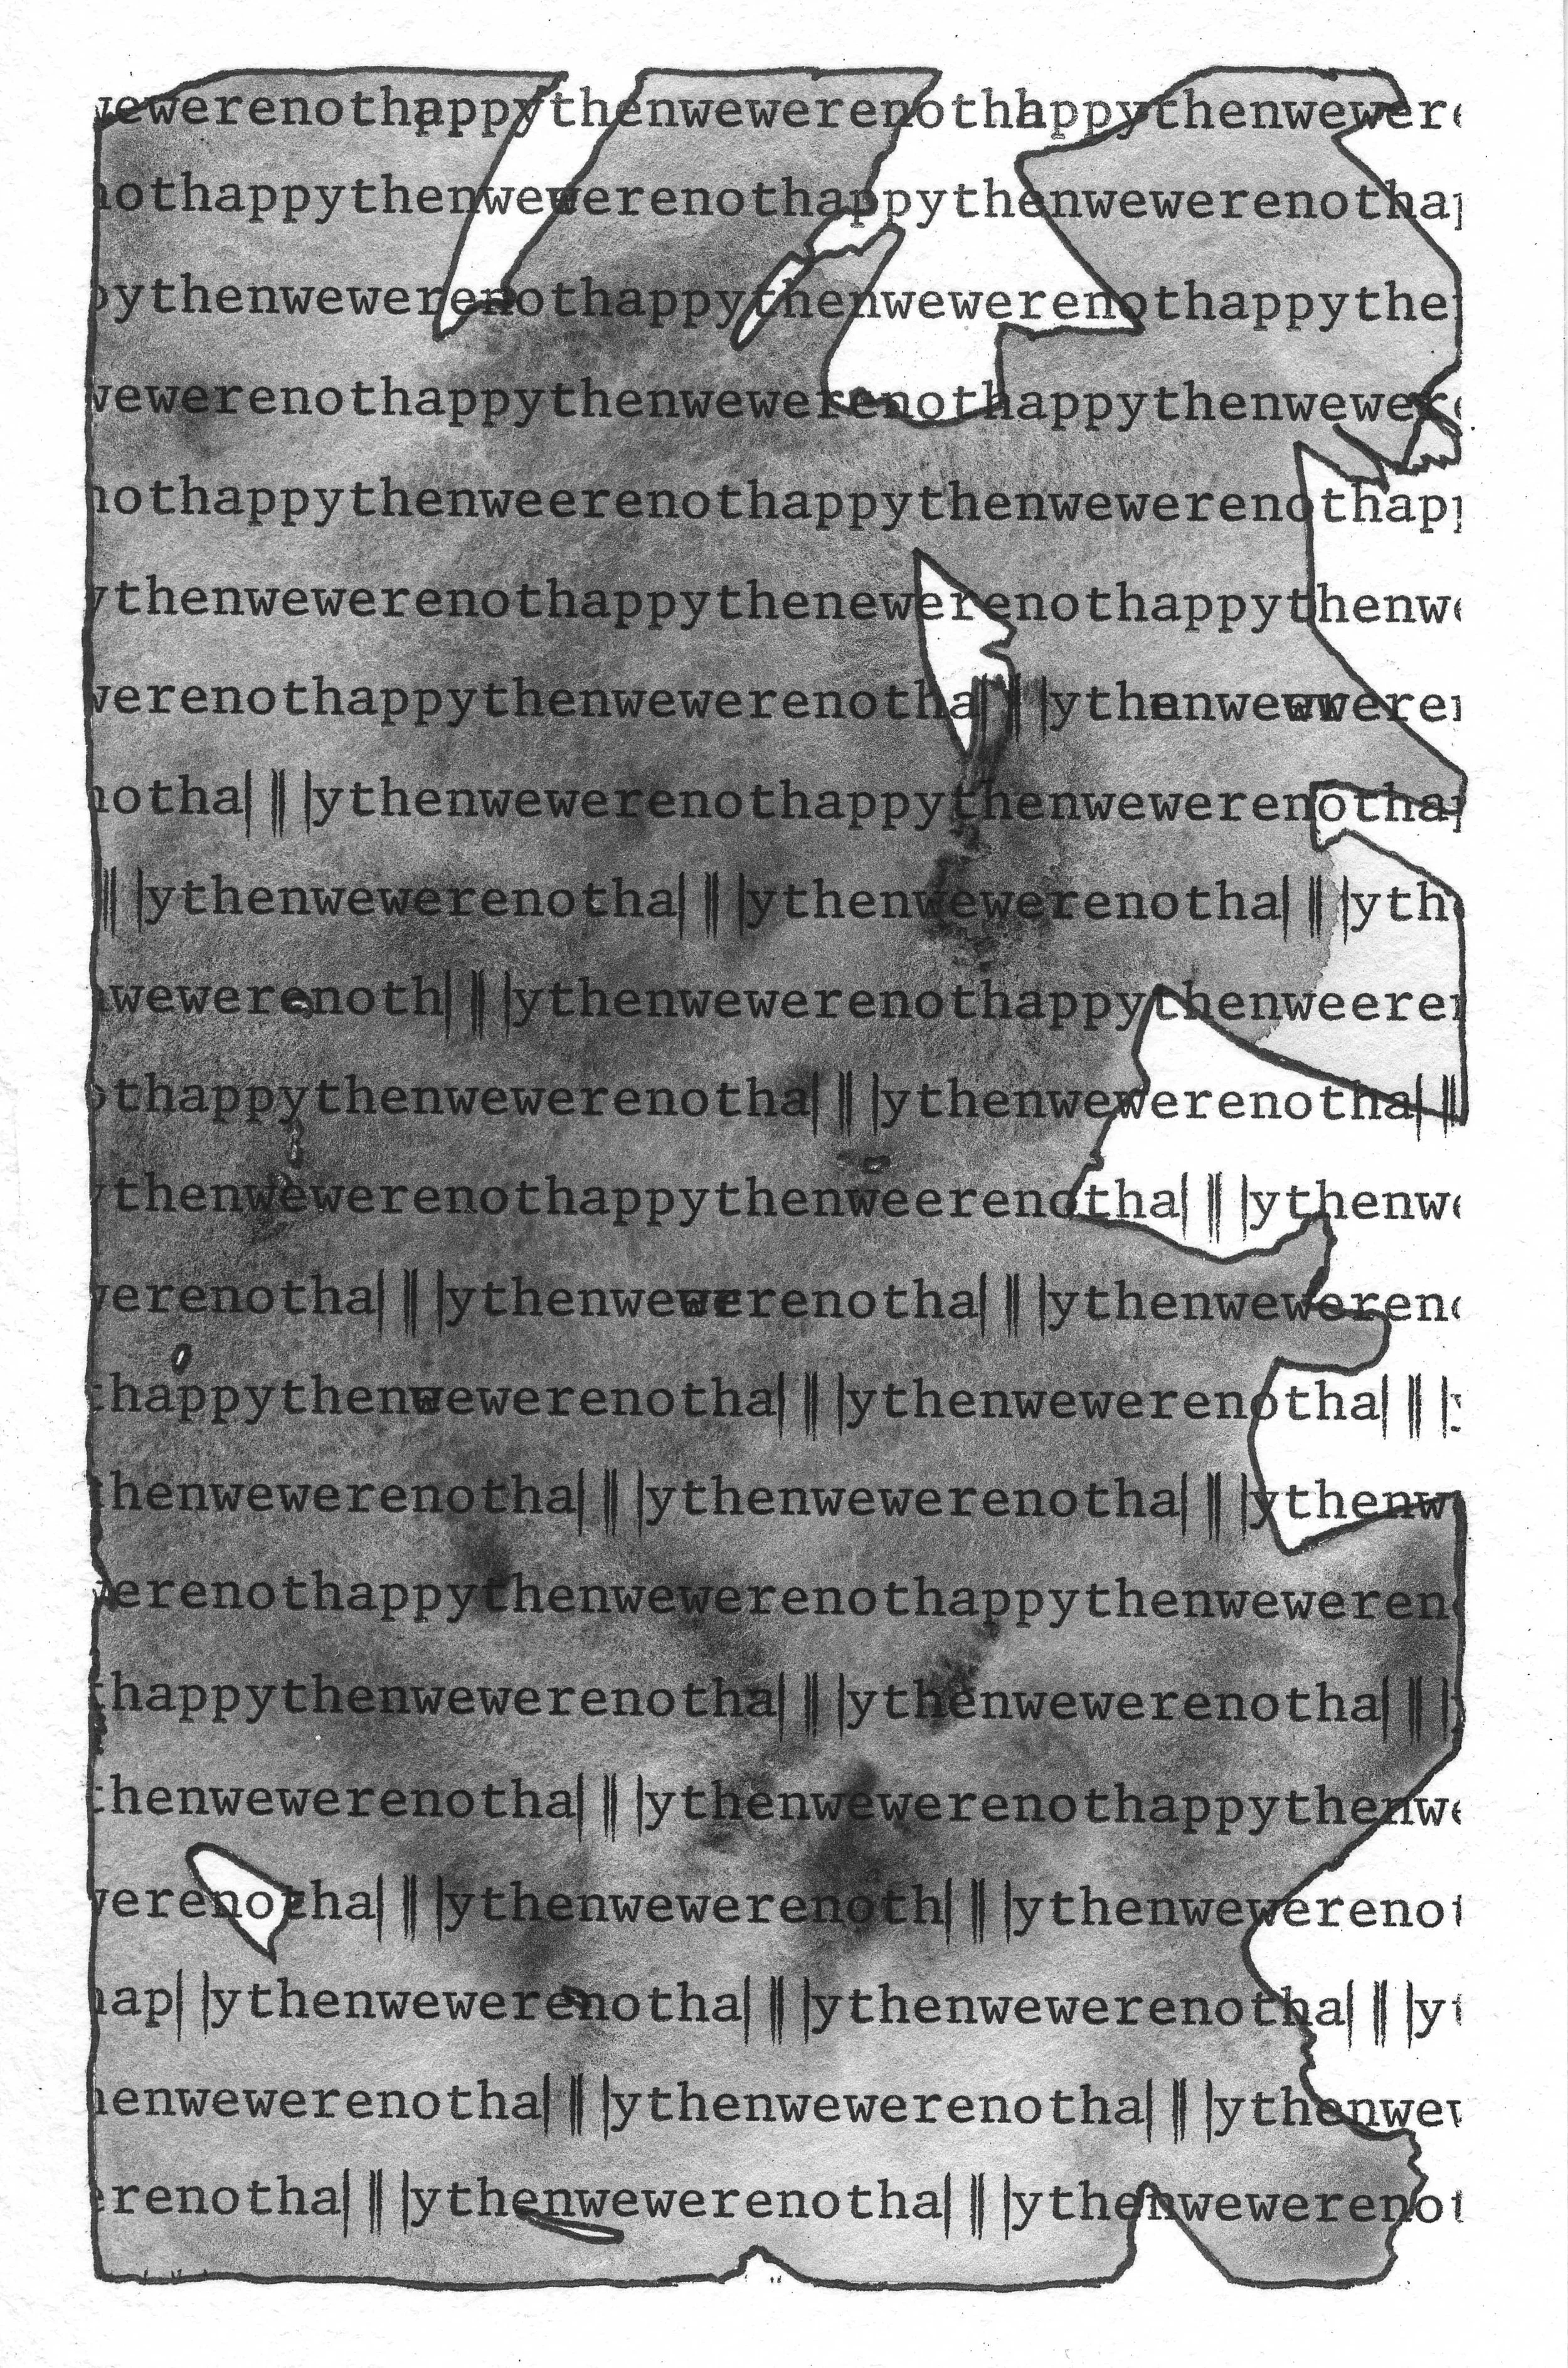 wewerenothappythenwewerenothhappythenwewere
nothappythenwewerenothappythenwewerenothap
pythenwewerenothappythenwewerenothappythe
wewerenothappythenwewerenothappythenwewere
nothappythenweerenothappythenwewerenothapp
ythenwewerenothappythenewerenothappythenwe
werenothappythenwewerenotha| || |ythenwewweren
notha| || |ythenwewerenothappythenwewerenothap
|| |ythenwewerenotha| || |ythenwewerenotha| || |ythe
nwewerenoth| || |ythenwewerenothappythenweeren
othappythenwewerenotha| || |ythenwewerenotha| ||
ythenwewerenothappythenweerenotha| || |ythenwe
werenotha| || |ythenwewerenotha| || |ythenwewereno
thappythenwewerenotha| || |ythenwewerenotha| || |y
thenwewerenotha| || |ythenwewerenotha| || |ythenwe
werenothappythenwewerenothappythenweweren
thappythenwewerenotha| || |ythenwewerenotha| || |
thenwewerenotha| || |ythenwewerenothappythenwe
werenotha| || |ythenwewerenoth| || |ythenwewerenot
hap| |ythenwewerenotha| || |ythenwewerenotha| || |yt
henwewerenotha| || |ythenwewerenotha| || |ythenwew
erenotha| || |ythenwewerenotha| || |ythenwewerenot